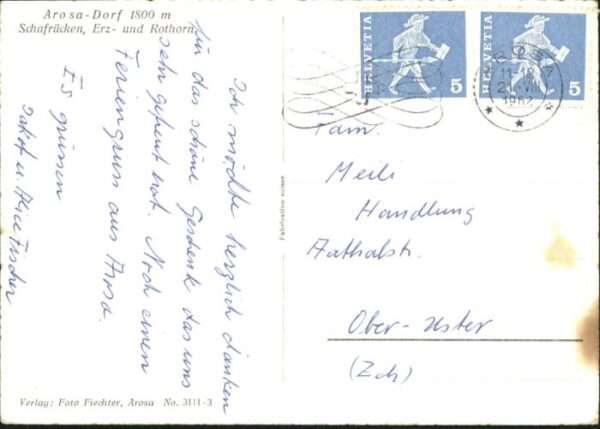 Arosa-Dorf 1800 m
Schafrücken, Erz- und Rothorn
Ich möchte herzlich danken
für das schöne Geschenk das uns
sehr gefreut hat. Noch einen
Feriengruss aus Arosa.
Es grüssen
Jakob u. Fischer
HELVETIA 5
HELVETIA 5
AROSA
1962
Fam.
Meili
Handlung
Aathalstr.
Ober-Uster
(Zch)
Fabrication suisse
Verlag: Foto Fiechter, Arosa No. 3111-3